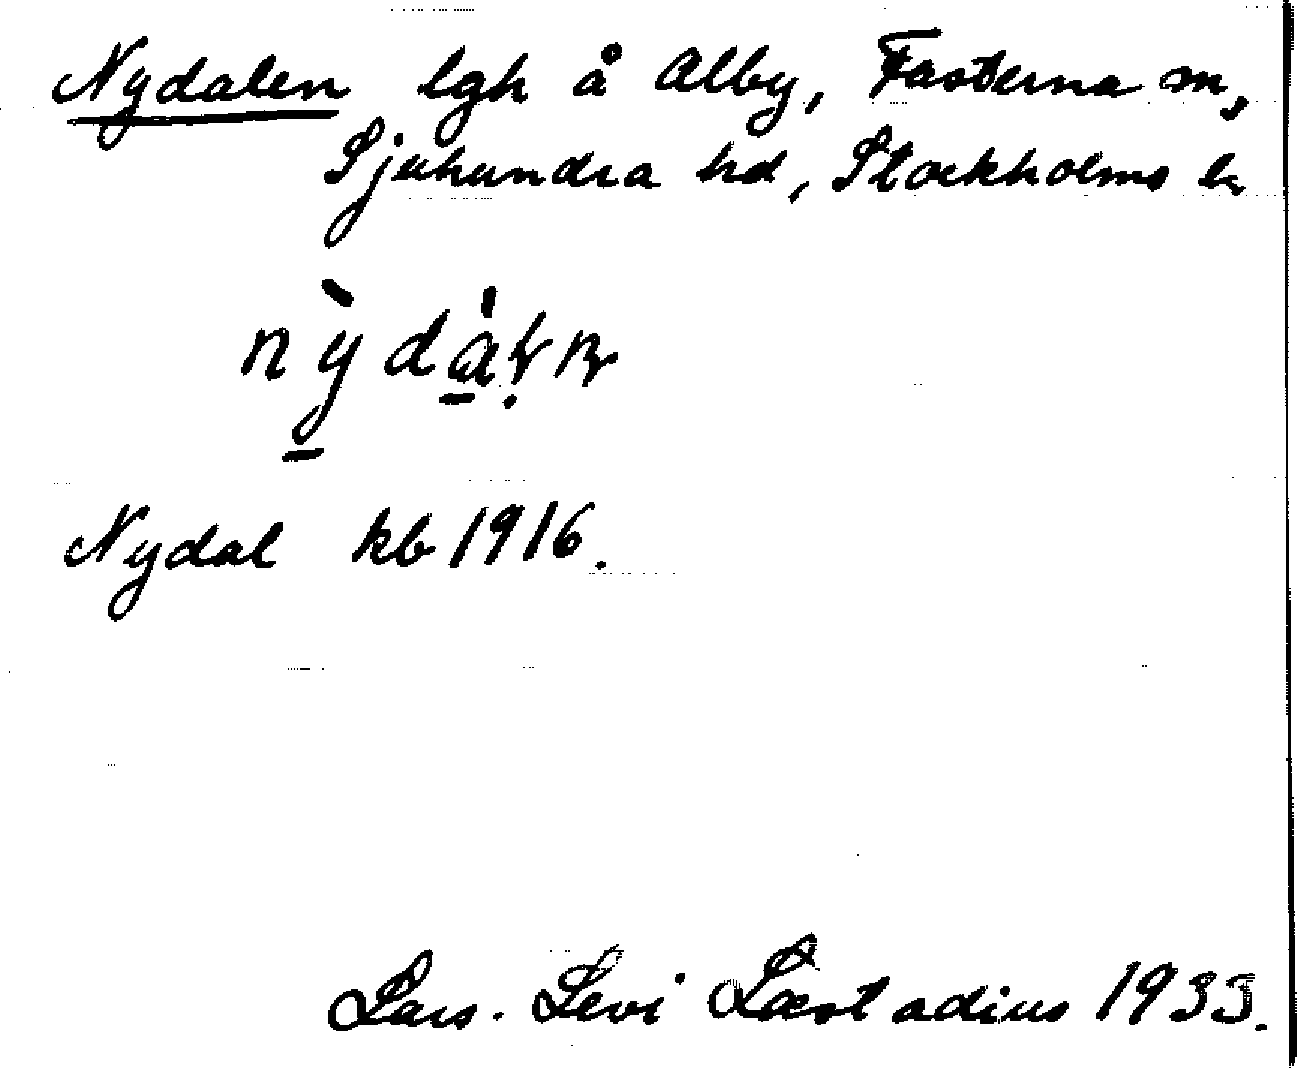 Nydalen lgh å Alby, Fasterna sn,
Sjuhundra hd, Stockholms l.
nỳdàḷn
Nydal kb 1916.
Lars. Levi Læstadius 1933.